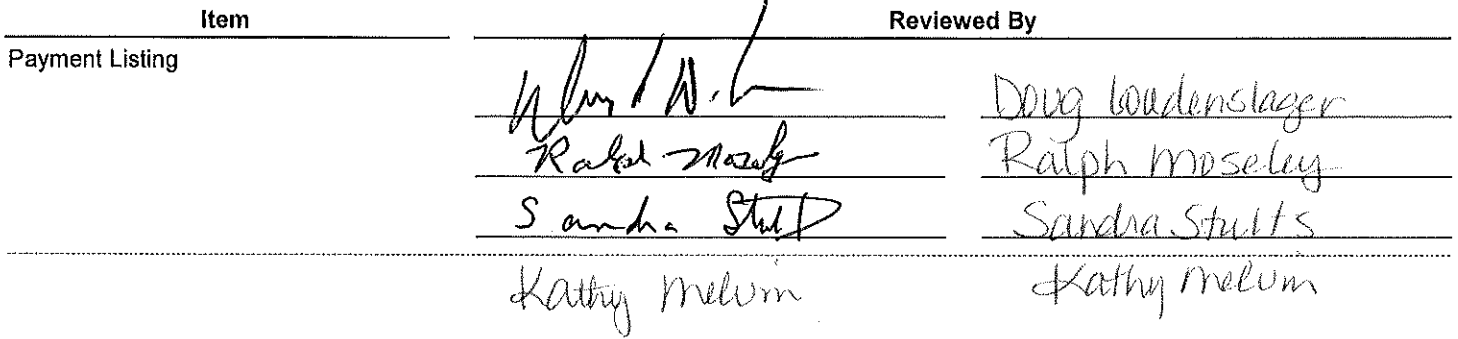 Item Reviewed By
Payment Listing
Doug Loudenslager
Ralph Moseley Ralph Moseley
Sandra Stults
Kathy Melvin Kathy Melvin